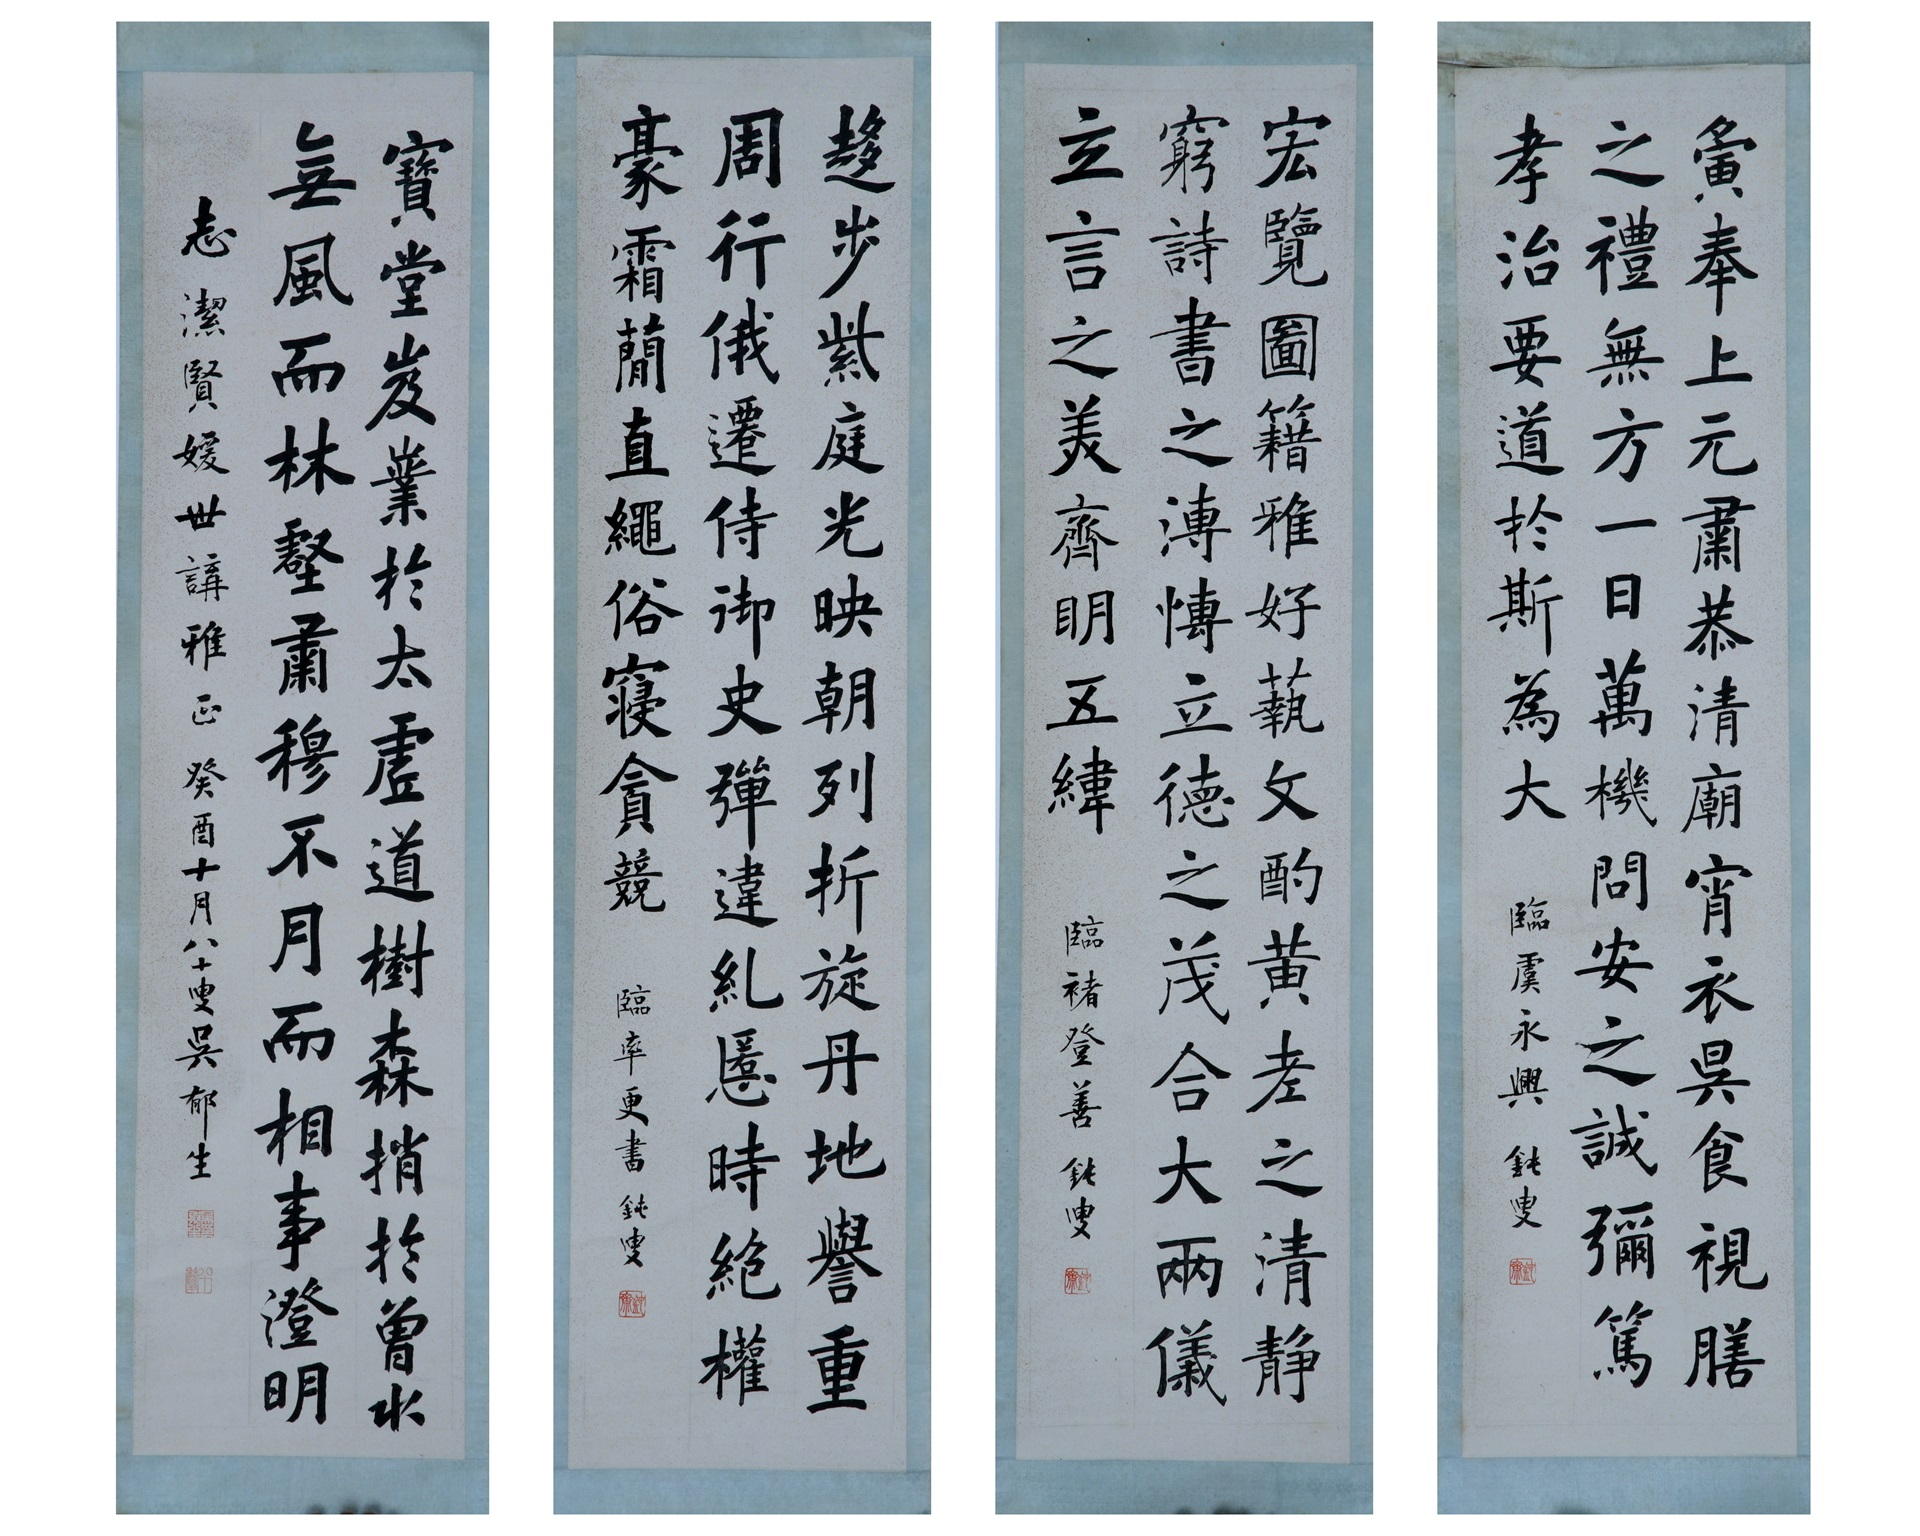 夤奉上元肅恭清廟宵衣昃食視膳
之禮無方一日萬機問安之誠彌篤
孝治要道於斯為大
臨虞永興 鈍叟
宏覽圖籍雅好藝文酌黃老之清静
窮詩書之溥愽立德之茂合大兩儀
立言之美齊明五緯
臨褚登善 鈍叟
趍步紫庭光映朝列折旋丹地譽重
周行俄遷侍御史彈違糺慝時絶權
豪霜簡直繩俗寝貪競
臨率更書 鈍叟
寶堂岌業於太虛道樹森捎於曾水
無風而林壑肅穆不月而相事澄明
志潔賢媛世講雅正 癸酉十月八十叟吳郁生